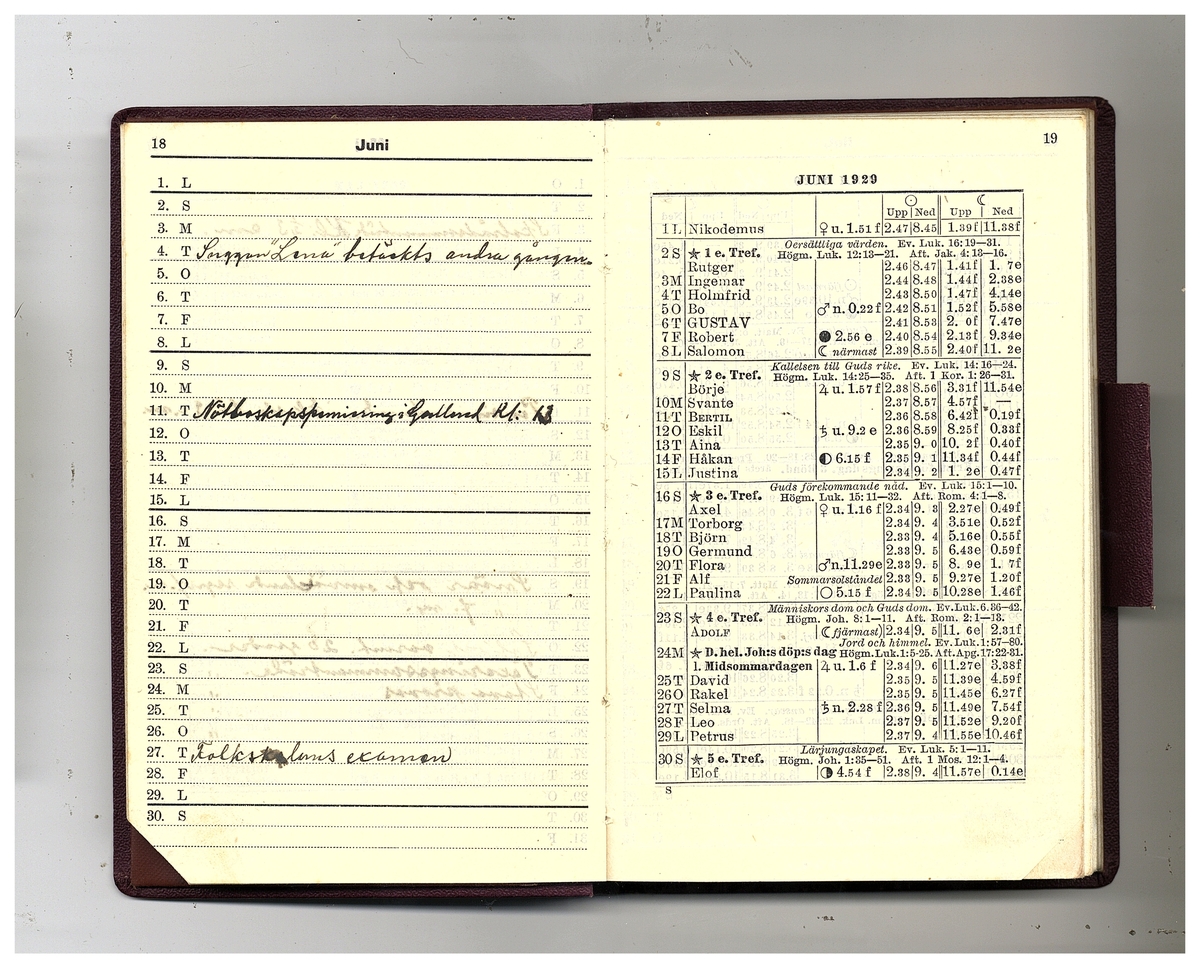 18 Juni
1. L
2. S
3. M
4. T Suggan "Lena" betäckts andra gången
5. O
6. T
7. F
8. L
9. S
10. M
11. T Nötboskapspremiering i Kl: 13
12. O
13. T
14. F
15. L
16. S
17. M
18. T
19. O
20. T
21. F
22. L
23. S
24. M
25. T
26. O
27. T Folkskolans examen
28. F
29. L
30. S
19
JUNI 1929
☉ ☾
Upp Ned Upp Ned
1 L Nikodemus ♀ u. 1.51 f 2.47 8.45 1.39f 11.38f
Oersättliga värden. Ev. Luk. 16:19—31.
2 S ★ 1 e. Tref. Högm. Luk. 12:13—21. Aft. Jak. 4:13—16.
Rutger 2.46 8.47 1.41f 1. 7e
3 M Ingemar 2.44 8.48 1.44f 2.38e
4 T Holmfrid 2.43 8.50 1.47f 4.14e
5 O Bo ♂ n. 0.22 f 2.42 8.51 1.52f 5.58e
6 T GUSTAV 2.41 8.53 2. 0f 7.47e
7 F Robert ● 2.56 e 2.40 8.54 2.13f 9.34e
8 L Salomon ☾ närmast 2.39 8.55 2.40f 11. 2e
Kallelsen till Guds rike. Ev. Luk. 14:16—24.
9 S ★ 2 e. Tref. Högm. Luk. 14:25—35. Aft. 1 Kor. 1:26—31.
Börje ♃ u. 1.57 f 2.38 8.56 3.31f 11.54e
10 M Svante 2.37 8.57 4.57f —
11 T BERTIL 2.36 8.58 6.42f 0.19f
12 O Eskil ♄ u. 9.2 e 2.36 8.59 8.25f 0.33f
13 T Aina 2.35 9. 0 10. 2f 0.40f
14 F Håkan ◐ 6.15 f 2.35 9. 1 11.34f 0.44f
15 L Justina 2.34 9. 2 1. 2e 0.47f
Guds förekommande nåd. Ev. Luk. 15:1—10.
16 S ★ 3 e. Tref. Högm. Luk. 15:11—32. Aft. Rom. 4:1—8.
Axel ♀ u. 1.16 f 2.34 9. 3 2.27e 0.49f
17 M Torborg 2.34 9. 4 3.51e 0.52f
18 T Björn 2.33 9. 4 5.16e 0.55f
19 O Germund 2.33 9. 5 6.43e 0.59f
20 T Flora ♂ n. 11.29e 2.33 9. 5 8. 9e 1. 7f
21 F Alf Sommarsolståndet 2.33 9. 5 9.27e 1.20f
22 L Paulina ○ 5.15 f 2.34 9. 5 10.28e 1.46f
Människors dom och Guds dom. Ev. Luk. 6.36—42.
23 S ★ 4 e. Tref. Högm. Joh. 8:1—11. Aft. Rom. 2:1—13.
ADOLF (☾ fjärmast) 2.34 9. 5 11. 6e 2.31f
Jord och himmel. Ev. Luk. 1:57—80.
24 M ★ D. hel. Joh:s döp:s dag Högm. Luk. 1:5-25. Aft. Apg. 17:22-31.
l. Midsommardagen ♃ u. 1.6 f 2.34 9. 6 11.27e 3.38f
25 T David 2.35 9. 5 11.39e 4.59f
26 O Rakel 2.35 9. 5 11.45e 6.27f
27 T Selma ♄ n. 2.28 f 2.36 9. 5 11.49e 7.54f
28 F Leo 2.37 9. 5 11.52e 9.20f
29 L Petrus 2.37 9. 4 11.55e 10.46f
Lärjungaskapet. Ev. Luk. 5:1—11.
30 S ★ 5 e. Tref. Högm. Joh. 1:35—51. Aft. 1 Mos. 12:1—4.
Elof ◑ 4.54 f 2.38 9. 4 11.57e 0.14e
S